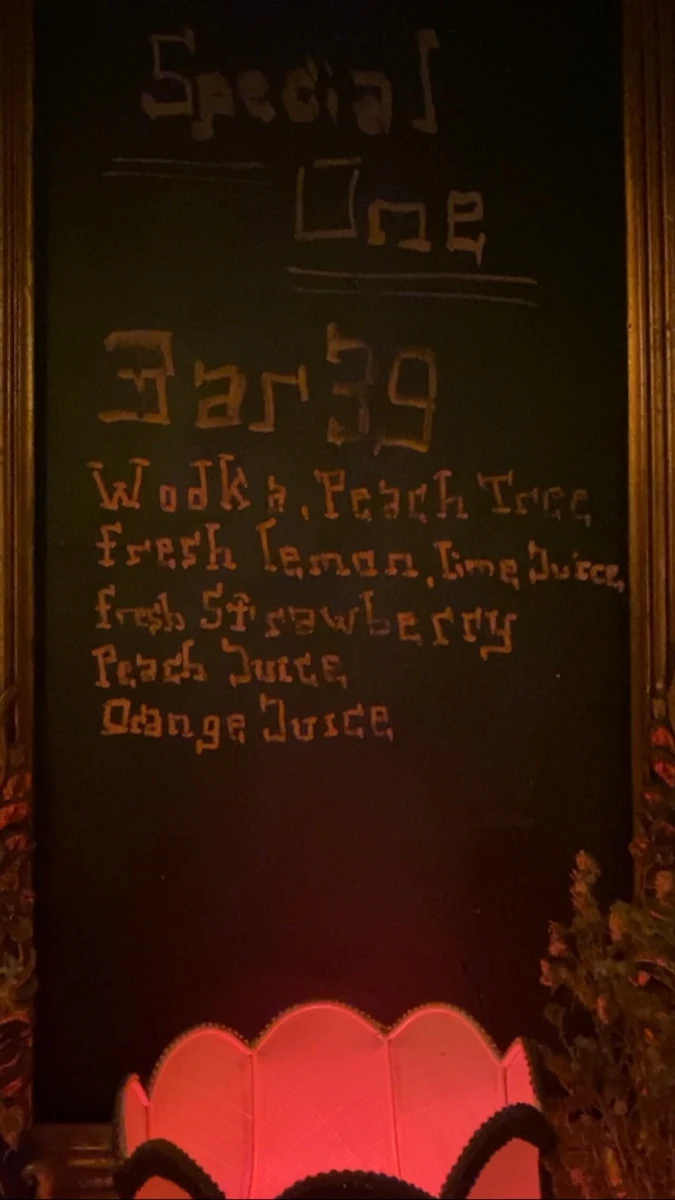 Special
One
Bar 39
Wodka, Peach Tree
fresh lemon, lime Juice,
fresh Strawberry
Peach Juice
Orange Juice